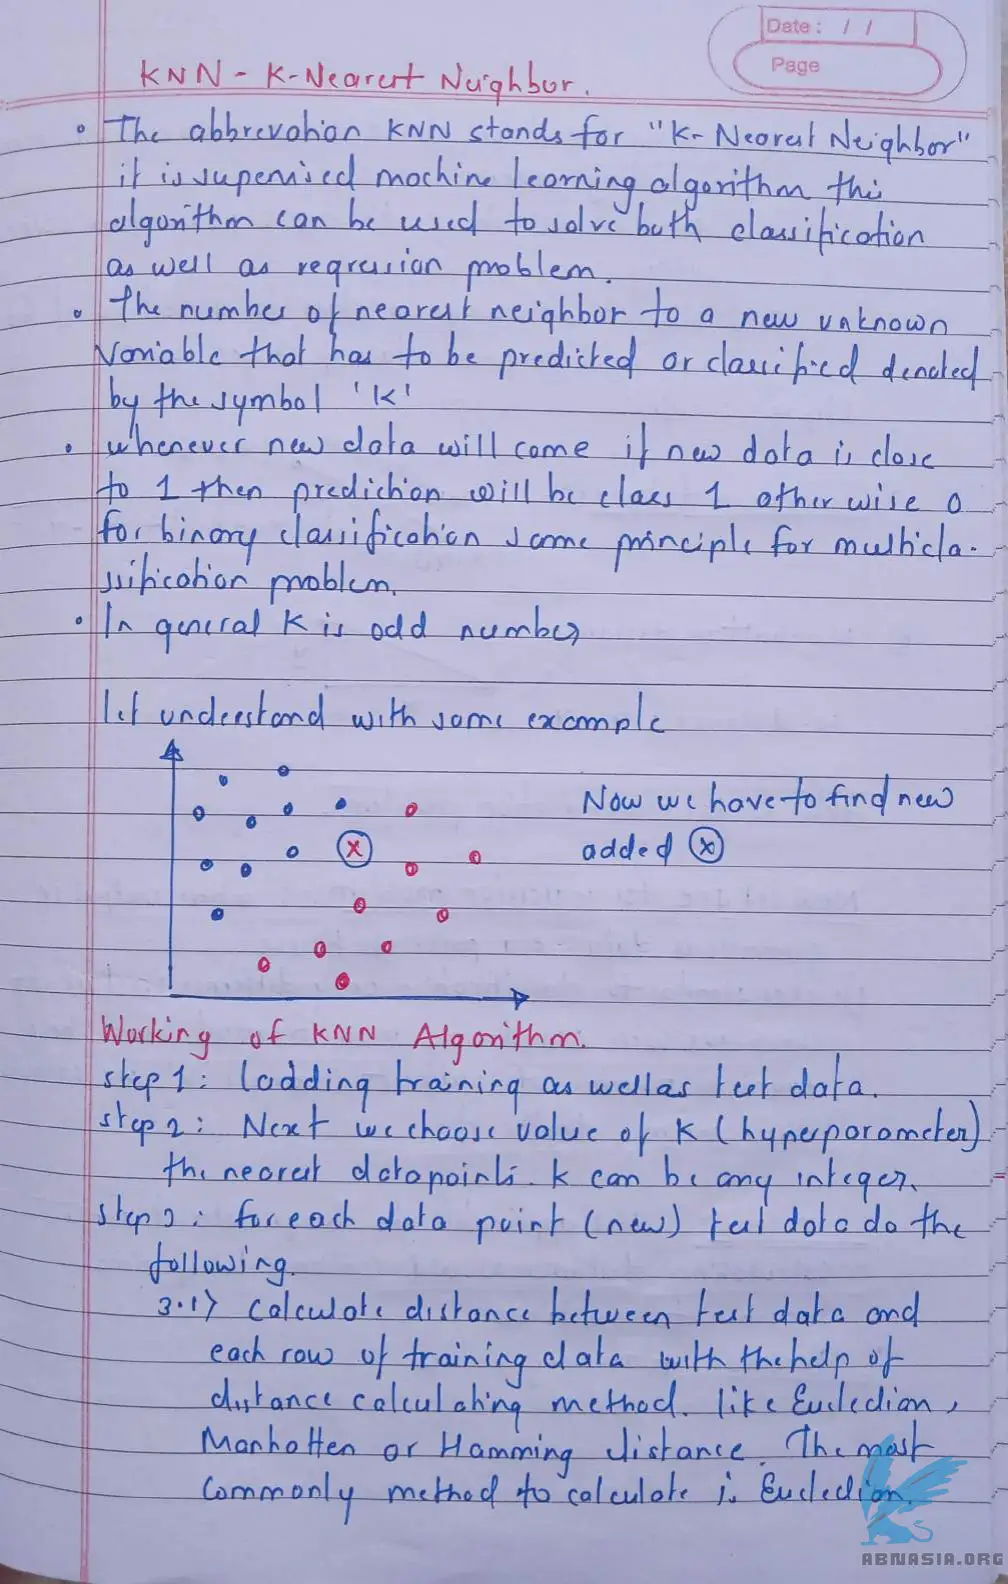 Date : / /
Page
KNN - K-Nearest Neighbor.
• The abbrevation KNN stands for "K-Nearest Neighbor"
it is supervised machine learning algorithm this
algorithm can be used to solve both classification
as well as regression problem.
• The number of nearest neighbor to a new unknown
Variable that has to be predicted or classified denoted
by the symbol 'K'
• whenever new data will come if new data is close
to 1 then prediction will be class 1 otherwise 0
for binary classification same principle for multicla-
ssification problem.
• In general K is odd number
let understand with some example
Now we have to find new
added ⓧ
x
Working of KNN Algorithm.
step 1: Loadding training as well as test data.
step 2: Next we choose value of K (hyperparameter)
the nearest datapoints. K can be any integer.
step 3: for each data point (new) test data do the
following.
3.1) Calculate distance between test data and
each row of training data with the help of
distance calculating method. like Eucledian,
Manhatten or Hamming distance. The most
commonly method to calculate is Eucledian.
ABNASIA.ORG